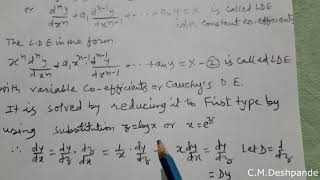 or dⁿy/dxⁿ + a₁ dⁿ⁻¹y/dxⁿ⁻¹ + ... + aₙy = X is called LDE
with Constant co-efficients
The L.D.E in the form
xⁿ dⁿy/dxⁿ + a₁xⁿ⁻¹ dⁿ⁻¹y/dxⁿ⁻¹ + ... + aₙy = X - ② is called LDE
with variable co-efficients or Cauchy's D.E.
It is solved by reducing it to First type by
using substitution z=logx or x=e^z
∴ dy/dx = dy/dz · dz/dx = 1/x · dy/dz ⇒ x dy/dx = dy/dz Let D = d/dz
= Dy
C.M.Deshpande